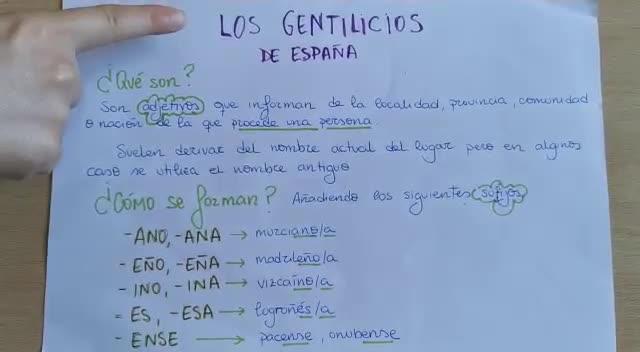 LOS GENTILICIOS
DE ESPAÑA
¿Qué son?
Son adjetivos que informan de la localidad, provincia, comunidad
o nación de la que procede una persona
Suelen derivar del nombre actual del lugar pero en algunos
caso se utiliza el nombre antiguo
¿CÓMO se forman? Añadiendo los siguientes sufijos
-ANO, -ANA → murciano/a
- EÑO, -EÑA → madrileño/a
- INO, -INA → vizcaíno/a
- ES, -ESA → logroñés/a
- ENSE → pacense, onubense